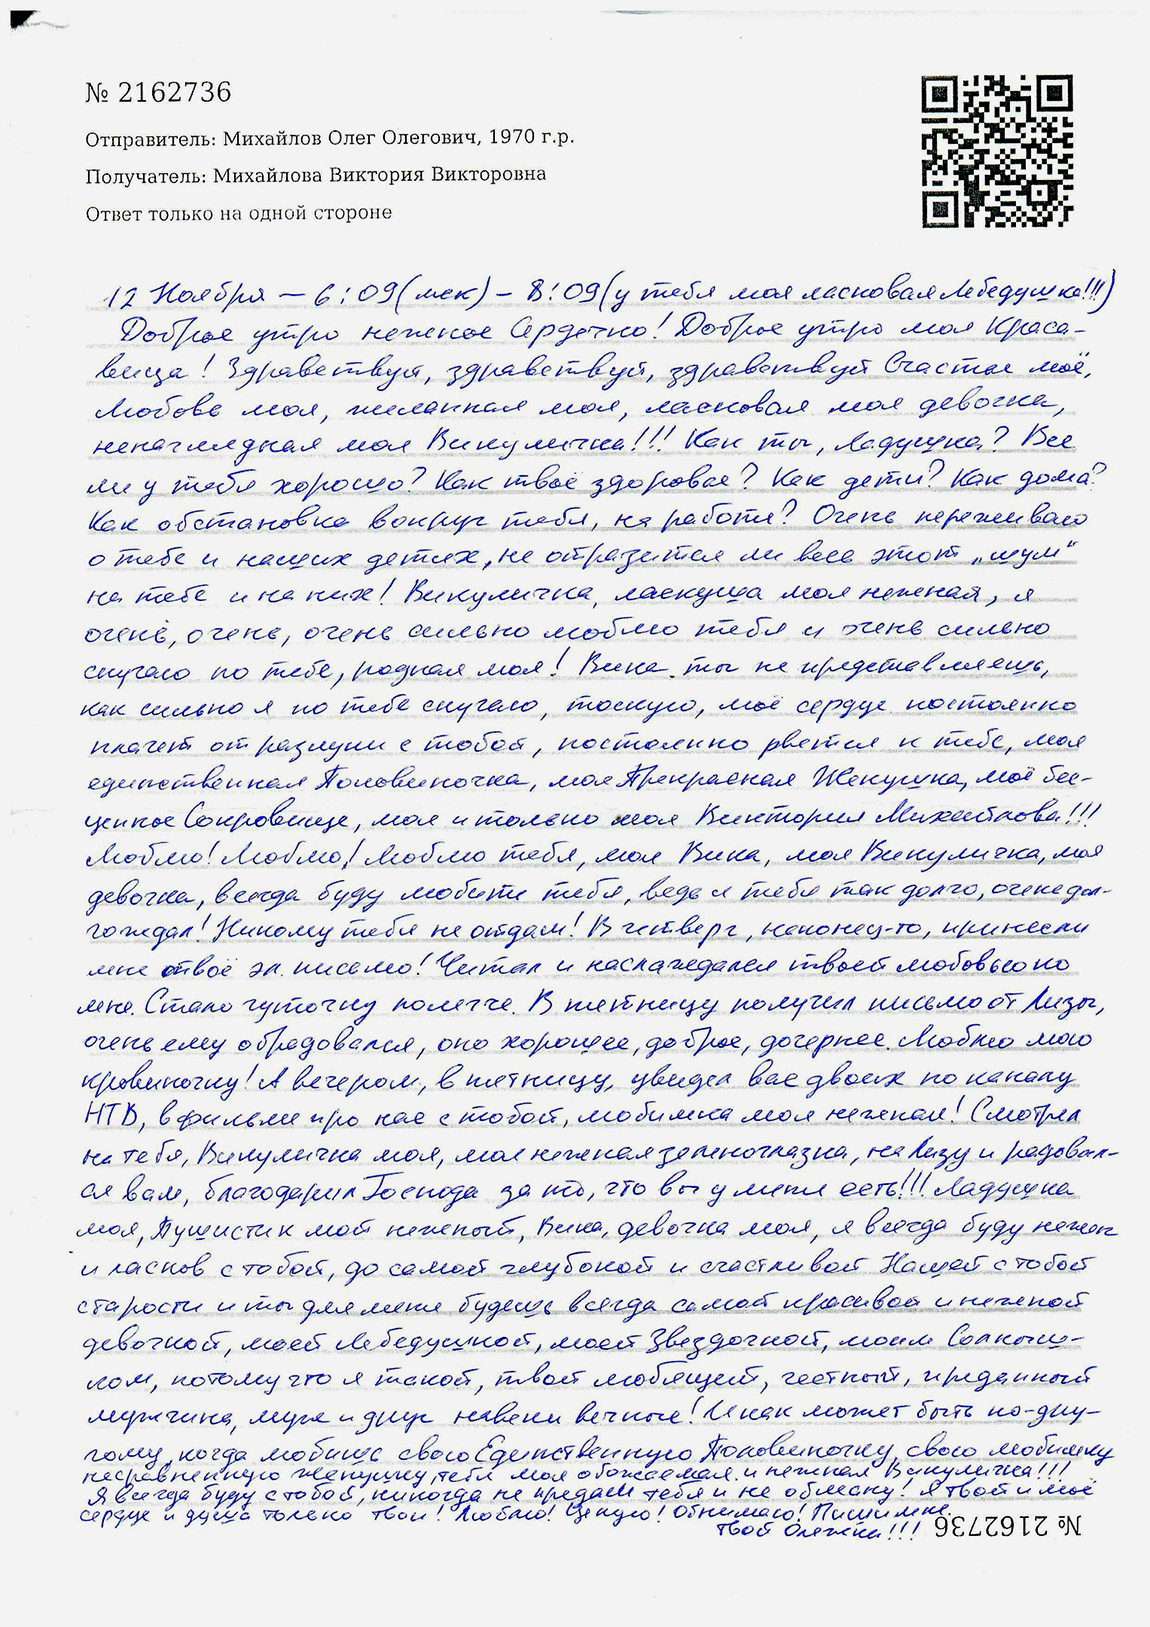 № 2162736
Отправитель: Михайлов Олег Олегович, 1970 г.р.
Получатель: Михайлова Виктория Викторовна
Ответ только на одной стороне
12 Ноября – 6:09 (мск) – 8:09 (у тебя моя ласковая Лебедушка!!!)
Доброе утро нежное Сердечко! Доброе утро моя Краса-
вица! Здравствуй, здравствуй, здравствуй Счастье моё,
Любовь моя, желанная моя, ласковая моя девочка,
ненаглядная моя Викуличка!!! Как ты, Ладушка? Все
ли у тебя хорошо? Как твоё здоровье? Как дети? Как дома?
Как обстановка вокруг тебя, на работе? Очень переживаю
о тебе и наших детях, не отразится ли весь этот „шум“
на тебе и на них! Викуличка, ласкуша моя нежная, я
очень, очень, очень сильно люблю тебя и очень сильно
скучаю по тебе, родная моя! Вика, ты не представляешь,
как сильно я по тебе скучаю, тоскую, моё сердце постоянно
плачет от разлуки с тобой, постоянно рвется к тебе, моя
единственная Половиночка, моя Прекрасная Женушка, моё бес-
ценное Сокровище, моя и только моя Виктория Михайлова!!!
Люблю! Люблю! Люблю тебя, моя Вика, моя Викуличка, моя
девочка, всегда буду любить тебя, ведь я тебя так долго, очень дол-
го ждал! Никому тебя не отдам! В четверг, наконец-то, принесли
мне твоё эл. письмо! Читал и наслаждался твоей любовью ко
мне. Стало чуточку полегче. В пятницу получил письмо от Лизы,
очень ему обрадовался, оно хорошее, доброе, дочернее. Люблю мою
кровиночку! А вечером, в пятницу, увидел вас двоих по каналу
НТВ, в фильме про нас с тобой, любимка моя нежная! Смотрел
на тебя, Викуличка моя, моя нежная зеленоглазка, на Лизу и радовал-
ся вам, благодарил Господа за то, что вы у меня есть!!! Ладушка
моя, Пушистик мой нежный, Вика, девочка моя, я всегда буду нежен
и ласков с тобой, до самой глубокой и счастливой Нашей с тобой
старости и ты для меня будешь всегда самой красивой и нежной
девочкой, моей Лебедушкой, моей Звездочкой, моим Солныш-
ком, потому что я такой, твой любящий, честный, преданный
мужчина, муж и друг навеки вечные! И как может быть по-дру-
гому, когда любишь свою Единственную Половиночку, свою любимку
несравненную женушку, тебя моя обожаемая и нежная Викуличка!!!
Я всегда буду с тобой, никогда не предам тебя и не обману! Я твой и моё
сердце и душа только твои! Люблю! Целую! Обнимаю! Пиши мне.
Твой Олежка!!!
№ 2162736